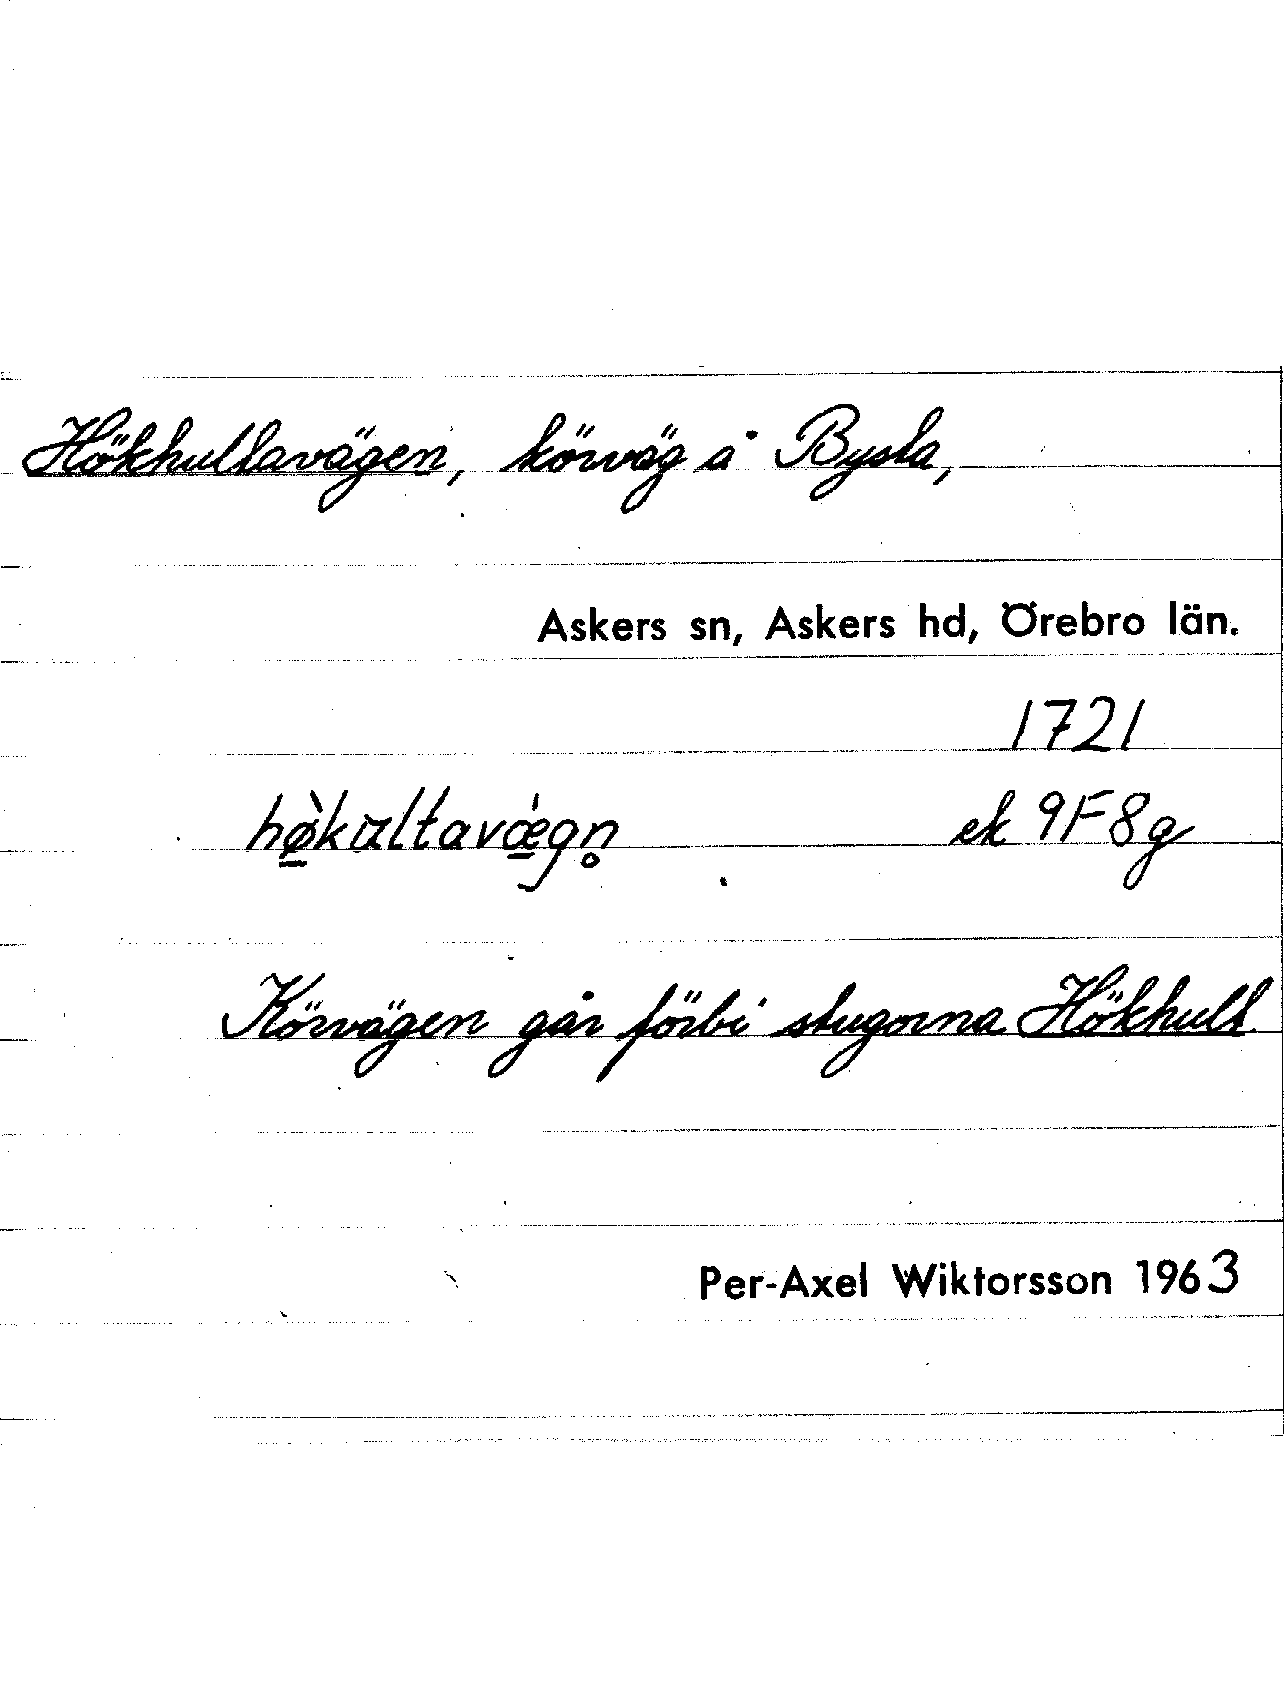 Hökhultavägen, körväg å Bysta,
Askers sn, Askers hd, Örebro län.
1721
hø̀kultavǽgn̥ ek 9F8g
Körvägen går förbi stugorna Hökhult.
Per-Axel Wiktorsson 1963